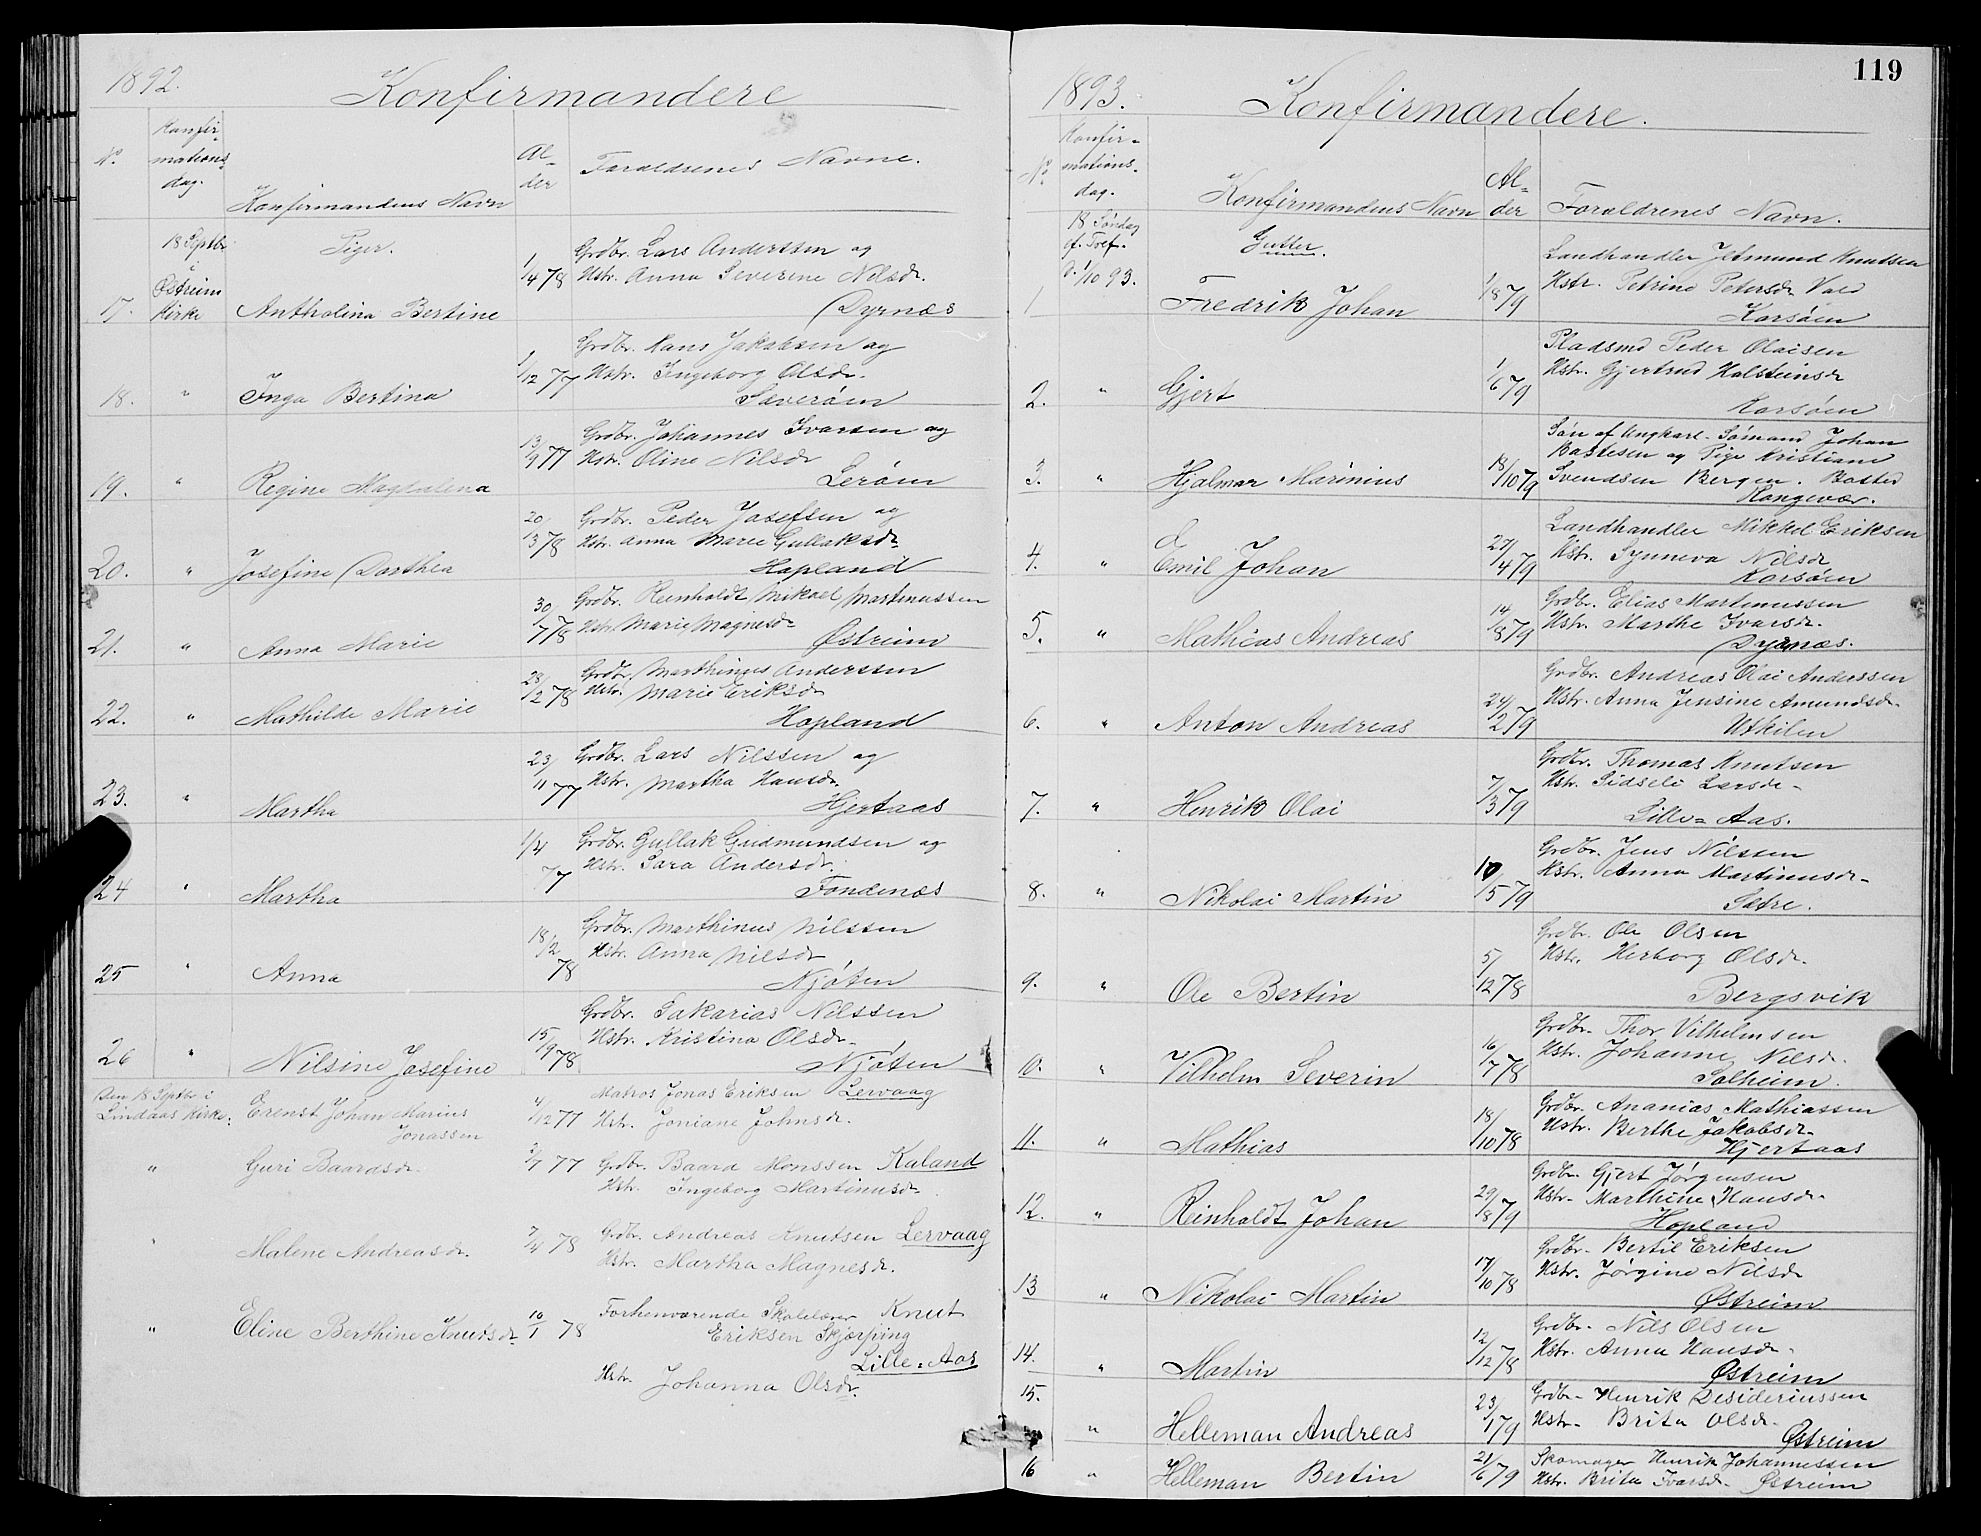 1892.
Konfirmandere
No.
Konfir-
mations
dag.
Konfirmandens Navn
Al-
der
Foraldrenes Navne.
18 Septbr
i
Østreim
Kirke
Piger.
17.
Antholina Bertine
1/4 78
Grdbr. Lars Anderssen og
Hstr. Anna Severine Nilsdr.
Dyrnæs
18.
"
Inga Bertina
1/12 77
Grdbr. Hans Jakobsen og
Hstr. Ingeborg Olsdr.
Sæverøen
19.
"
Regine Magdalena
13/9 77
Grdbr. Johannes Ivarsen og
Hstr. Oline Nilsdr
Lerøen
20.
"
Josefine Dorthea
20/3 78
Grdbr. Peder Josefsen og
Hstr. Anna Marie Gullaksdr.
Hopland
21.
"
Anna Marie
30/7 78
Grdbr. Reinholdt Mikael Martinussen
Hstr. Marie Magnesdr
Østreim
22.
"
Mathilde Marie
28/12 78
Grdbr. Marthinus Anderssen
Hstr. Marie Eriksdr
Hopland
23.
"
Martha
23/11 77
Grdbr. Lars Nilssen og
Hstr. Martha Hansdr.
Hjertaas
24
"
Martha
1/4
77
Grdbr. Gullak Gudmundsen og
Hstr. Sara Andersdr.
Fondenæs
25
"
Anna
18/2
78
Grdbr. Marthinus Nilssen
Hstr. Anna Nilsdr
Njøten
26
"
Nilsine Josefine
15/9 78
Grdbr. Sakarias Nilssen
Hstr. Kristina Olsdr.
Njøten
Den 18 Septbr i
Lindaas Kirke:
Ernst Johan Marius
Jonassen
4/12 77
Matros Jonas Eriksen Lervaag
Hstr. Joniane Johnsdr.
"
Guri Baardsdr.
2/7 77
Grdbr. Baard Monssen Kaland
Hstr. Ingeborg Martinusdr.
"
Malene Andreasdr.
7/4 78
Grdbr. Andreas Knutsen Lervaag
Hstr. Martha Magnesdr.
"
Eline Berthine Knutsdr
10/1 78
Forhenværende Skolelærer Knut
Eriksen Skjærping
Lille-Aas
Hstr. Johanna Olsdr.
119
1893.
Konfirmandere.
No.
Konfir-
mations.
dag.
Konfirmandens Navn
Al-
der
Foraldrenes Navn.
18 Søndag
ef. Tref.
d. 1/10 93.
Gutter.
1
Fredrik Johan
1/8 79
Landhandler Jetmund Knutsen
Hstr. Petrine Petersdr Vold
Korsøen
2.
"
Gjert
1/6 79
Pladsmd Peder Olaisen
Hstr. Gjertrud Halsteinsdr
Korsøen
3.
"
Hjalmar Marinius
18/10 79
Søn af Ungkarl-Sømand Johan
Bastesen og Pige Kristiane
Svendsen Bergen. Bosted
Kongevær.
4.
"
Emil Johan
27/4 79
Landhandler Mikkel Eriksen
Hstr. Synneva Nilsdr
Korsøen
5.
"
Mathias Andreas
14/8 79
Grdbr. Elias Martinussen
Hstr. Marthe Ivarsdr.
Dyrnæs.
6.
"
Anton Andreas
24/2 79
Grdbr. Andreas Olai Anderssen
Hstr. Anna Jensine Amundsdr.
Utkilen
7.
"
Henrik Olai
7/3 79
Grdbr. Thomas Knutsen
Hstr. Sidseli Larsdr.
Lille-Aas.
8.
"
Nikolai Martin
10/5 79
Grdbr. Jens Nilssen
Hstr. Anna Martinusdr.
Sætre.
9.
"
Ole Bertin
5/12 78
Grdbr. Ole Olsen
Hstr. Herborg Olsdr.
Bergsvik
10.
"
Vilhelm Severin
16/7 78
Grdbr. Thor Vilhelmsen
Hstr. Johanne Nilsdr.
Solheim.
11.
"
Mathias
18/10 78
Grdbr. Ananias Mathiassen
Hstr. Berthe Jakobsdr.
Hjertaas
12.
"
Reinholdt Johan
29/8 79
Grdbr. Gjert Jørgensen
Hstr. Marthine Hansdr.
Hopland
13
"
Nikolai Martin
17/10 78
Grdbr. Bertil Eriksen
Hstr. Jørgine Nilsdr
Østreim
14.
"
Martin
12/12 78
Grdbr. Nils Olsen
Hstr. Anna Hansdr.
Østreim
15.
"
Helleman Andreas
23/1 79
Grdbr. Henrik Desideriussen
Hstr. Brita Olsdr.
Østreim
16
"
Helleman Bertin
21/6 79
Skomager Henrik Johannessen
Hstr. Brita Ivarsdr. Østreim